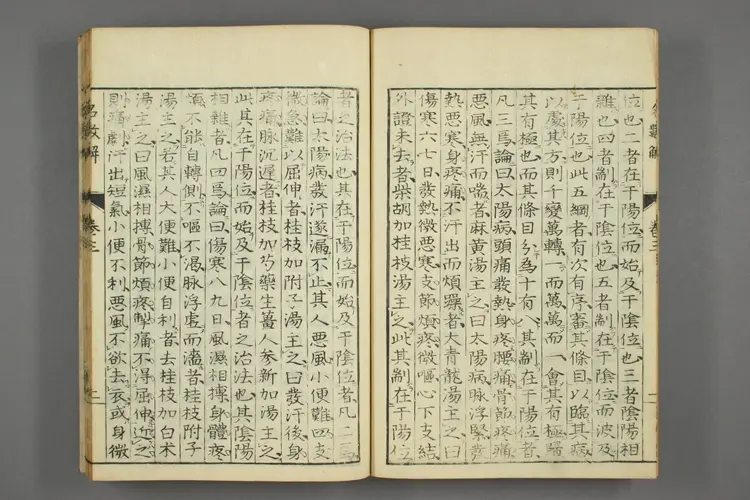 位也二者在于陽位而始及于陰位也三者陰陽相
雜也四者劑在于陰位也五者劑在于陰位而波及
于陽位也此五綱者有次有序審其條目以臨其病
以處其方則千變萬轉一而萬萬而一會其有極歸
其有極也而其條目分為十有八其劑在于陽位者
凡三焉論曰太陽病頭痛發熱身疼腰痛骨節疼痛
惡風無汗而喘者麻黃湯主之曰太陽病脉浮緊發
熱惡寒身疼痛不汗出而煩躁者大青龍湯主之曰
傷寒六七日發熱微惡寒支節煩疼微嘔心下支結
外證未去者柴胡加桂枝湯主之此其劑在于陽位
卷三
者之治法也其在于陽位而始及于陰位者凡二焉
論曰太陽病發汗遂漏不止其人惡風小便難四支
微急難以屈伸者桂枝加附子湯主之曰發汗後身
疼痛脉沉遲者桂枝加芍藥生薑人參新加湯主之
此其在于陽位而始及于陰位者之治法也其陰陽
相雜者凡四焉論曰傷寒八九日風濕相搏身體疼
煩不能自轉側不嘔不渴脉浮虛而濇者桂枝附子
湯主之若其人大便難小便自利者去桂枝加白术
湯主之曰風濕相搏骨節煩疼掣痛不得屈伸近之
則痛劇汗出短氣小便不利惡風不欲去衣或身微
名數解
卷三
二